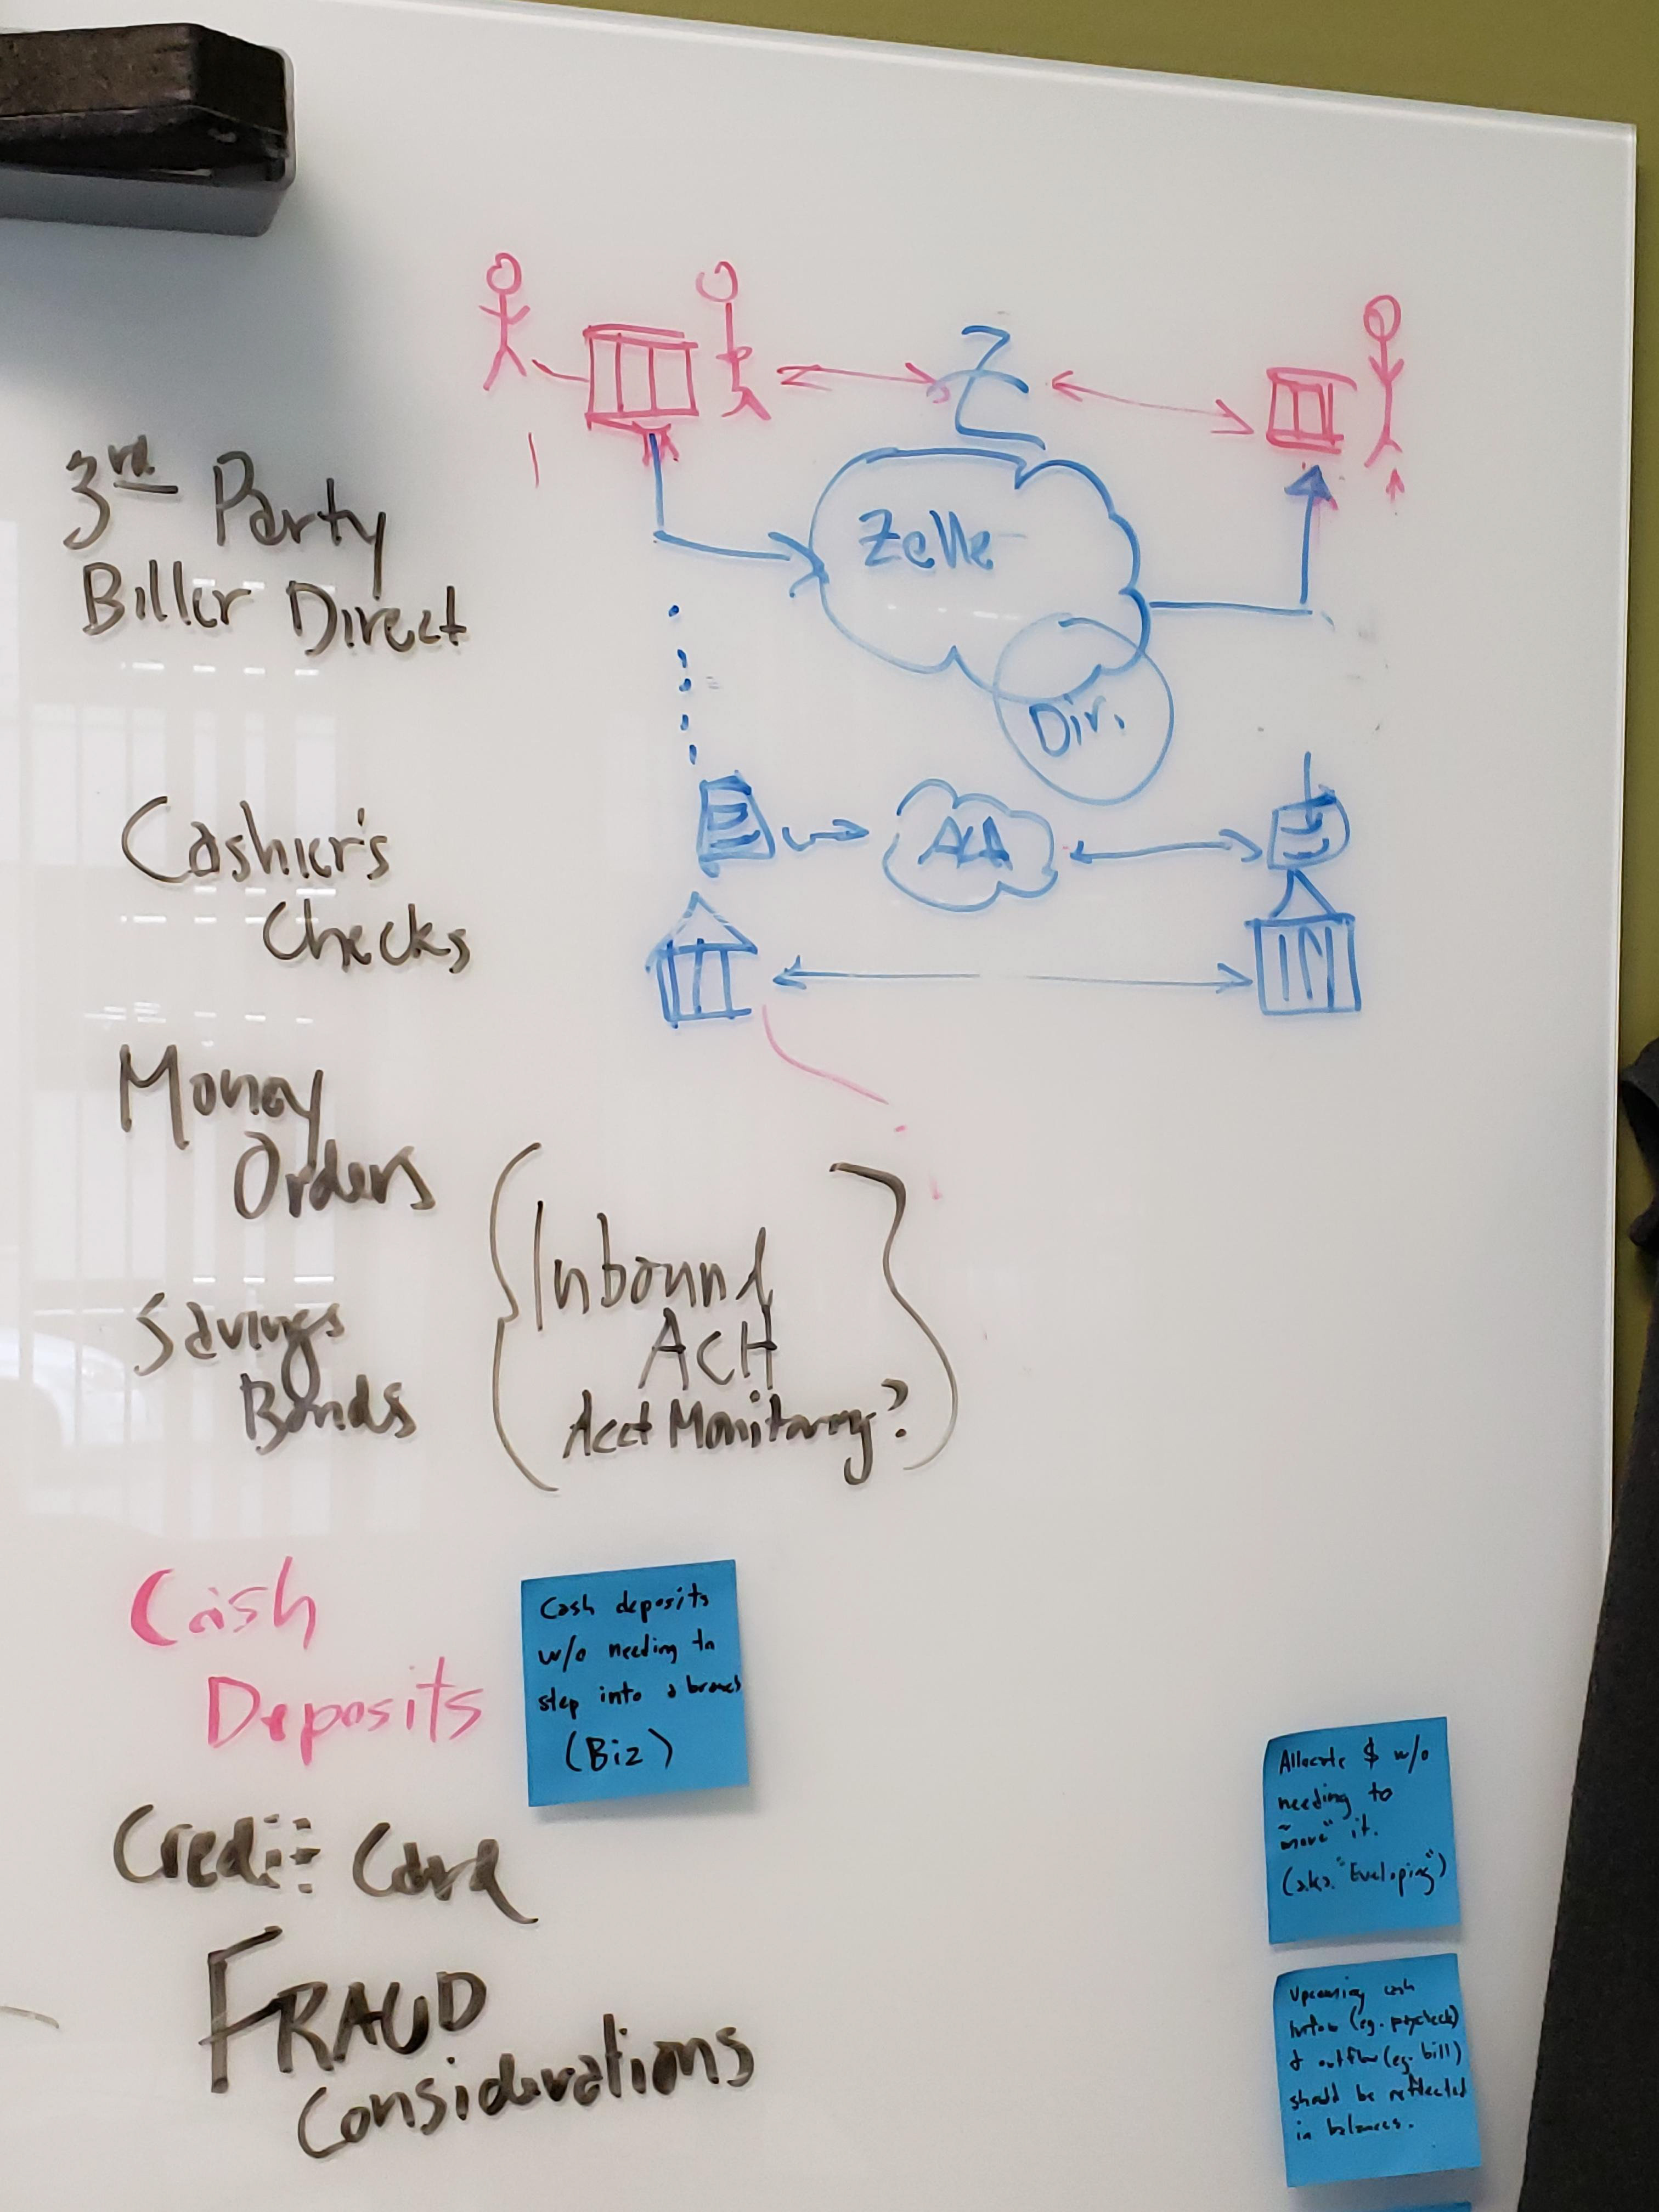 3rd Party
Biller Direct
Z
Zelle
Dir.
ACH
Cashier's
Checks
Money
Orders
Savings
Bonds
Inbound
ACH
Acct Monitoring?
Cash
Deposits
Cash deposits
w/o needing to
step into a branch
(Biz)
Credit Card
FRAUD
Considerations
Allocate $ w/o
needing to
"move" it.
(aka. "Eveloping")
Upcoming cash
inflow (eg. paycheck)
& outflow (eg. bill)
should be reflected
in balances.